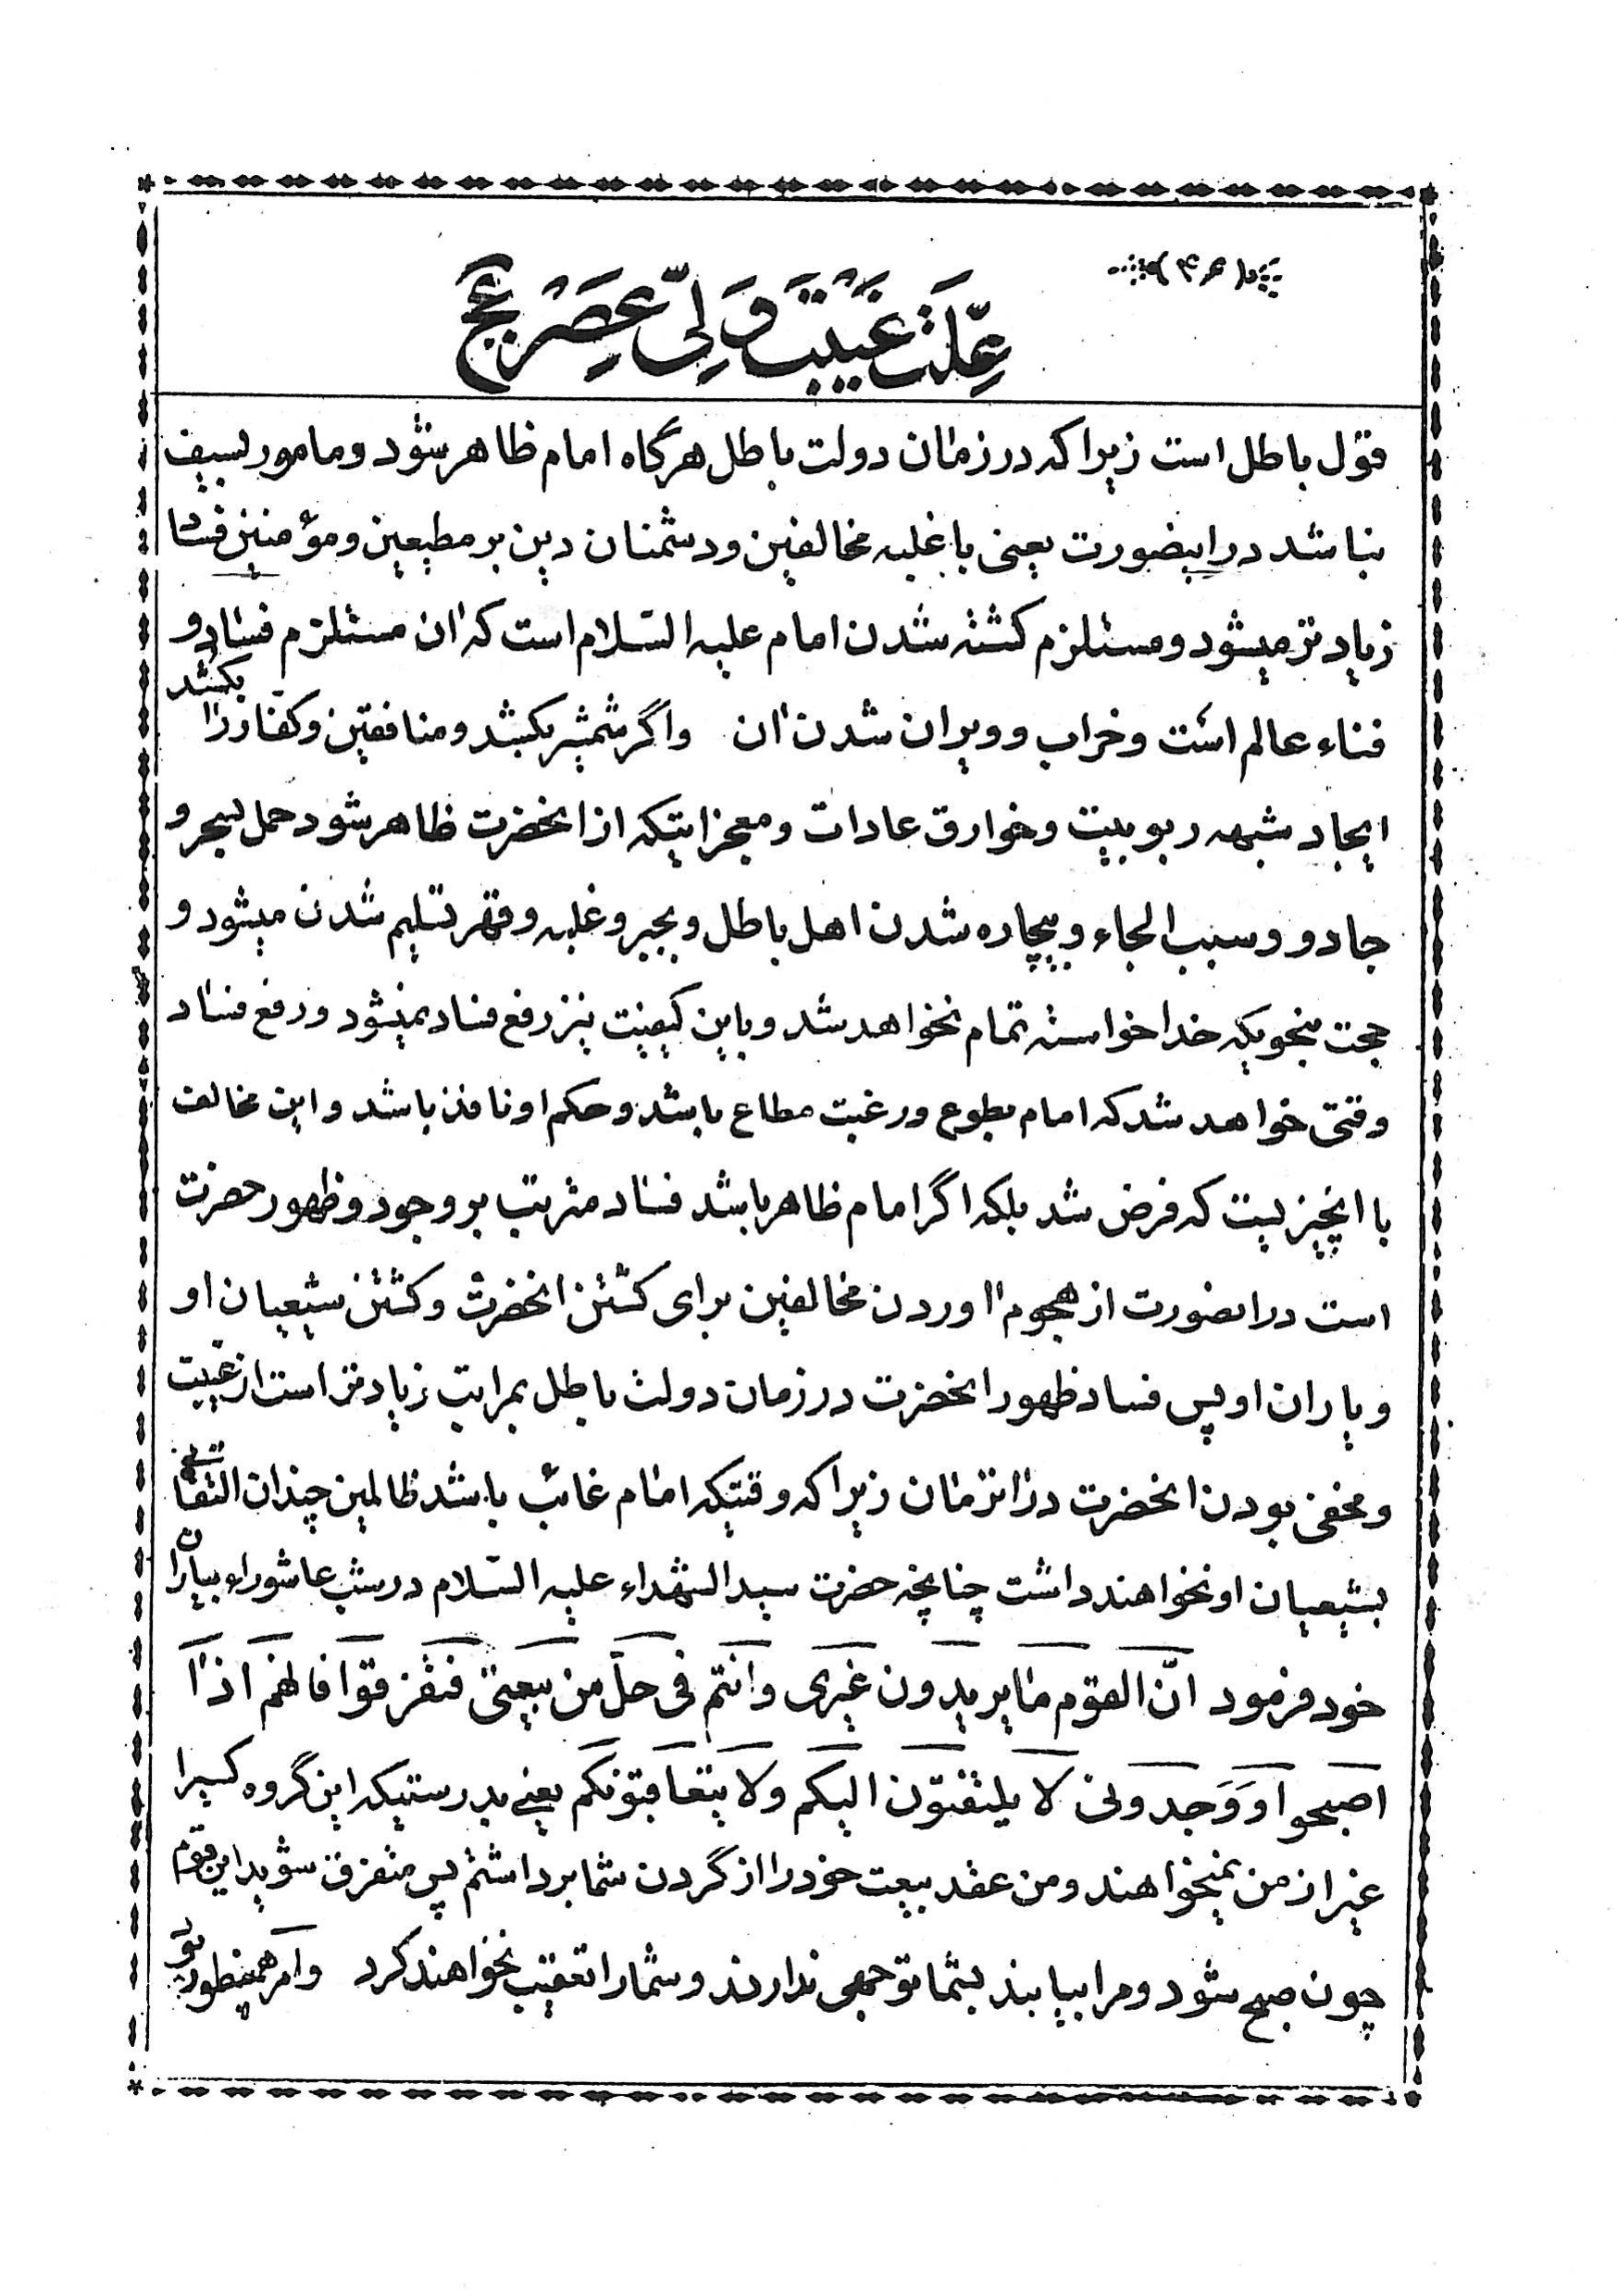 (۴۶)
عِلَّتِ غَیْبَتِ وَلِیِّ عَصْرْ عَجّ
قول باطل است زیرا که در زمان دولت باطل هرگاه امام ظاهر شود و مامور بسیف
نباشد در اینصورت یعنی با غلبه مخالفین و دشمنان دین بر مطیعین و مؤمنین فساد
زیادتر میشود و مستلزم کشته شدن امام علیه السّلام است که آن مستلزم فساد و
فناء عالم است و خراب و ویران شدن آن واگر شمشیر بکشد و منافقین و کفار را بکشد
ایجاد شبهه ربوبیت و خوارق عادات و معجزاتیکه از انحضرت ظاهر شود حمل بسحر و
جادو و سبب الجاء و بیچاره شدن اهل باطل و بجبر و غلبه و قهر تسلیم شدن میشود و
حجت بنحویکه خدا خواسته تمام نخواهد شد و باین کیفیت نیز رفع فساد نمیشود و رفع فساد
وقتی خواهد شد که امام بطوع و رغبت مطاع باشد و حکم او نافذ باشد و این مخالف
با انچیزیست که فرض شد بلکه اگر امام ظاهر باشد فساد مترتب بر وجود و ظهور حضرت
است در انصورت از هجوم اوردن مخالفین برای کشتن انحضرت و کشتن شیعیان او
و یاران او پس فساد ظهور انحضرت در زمان دولت باطل بمراتب زیادتر است از غیبت
و مخفی بودن انحضرت در انزمان زیرا که وقتیکه امام غائب باشد ظالمین چندان التفاتی
بشیعیان او نخواهند داشت چنانچه حضرت سید الشهداء علیه السّلام در شب عاشوراء بیاران
خود فرمود انّ القوم ما یریدون غیری وانتم فی حلّ من بیعتی فتفرقوا فانهم اذا
اصبحوا وَوَجدونی لا یلتفتون الیکم ولا یتعاقبونکم یعنی بدرستیکه این گروه کسیرا
غیر از من نمیخواهند و من عقد بیعت خود را از گردن شما برداشتم پس متفرق شوید این قوم
چون صبح شود و مرا بیابند بشما توجهی ندارند و شما را تعقیب نخواهند کرد وامر همینطور بود